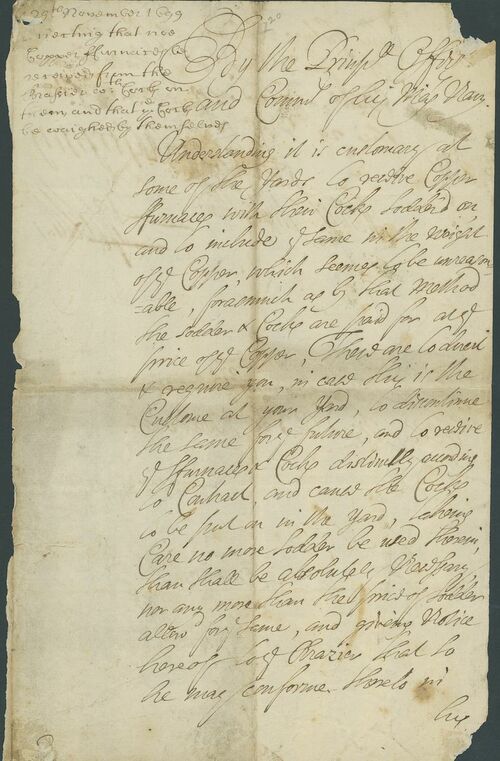 29th November 1699
Directing that noe
Copper Furnaces be
received from the
Brasier wth Cocks on
them and that ye Cocks
be weighed by themselves
120
By the Prinpll Officrs
and Commrs of his Maj Navy.
Understanding it is customary at
some of the Yards to receive Copper
ffurnaces with their Cocks sodder'd on,
and to include ye same in the weight
of ye Copper, which seemes to be unreason
=able, forasmuch as by that method
the sodder & Cocks are paid for at ye
price of ye Copper, These are to direct
& require you, in case this is the
Custome at your Yard, to discontinue
the same for ye future, and to receive
ye ffurnaces & Cocks distinctly according
to Contract, and cause the Cocks
to be put on in the Yard, takeing
Care no more sodder be used therein,
than shall be absolutely Necessary
nor any more than the price of sodder
allow'd for ye same, and giveing Notice
hereof to ye Brazier that so
he may conforme thereto in
his